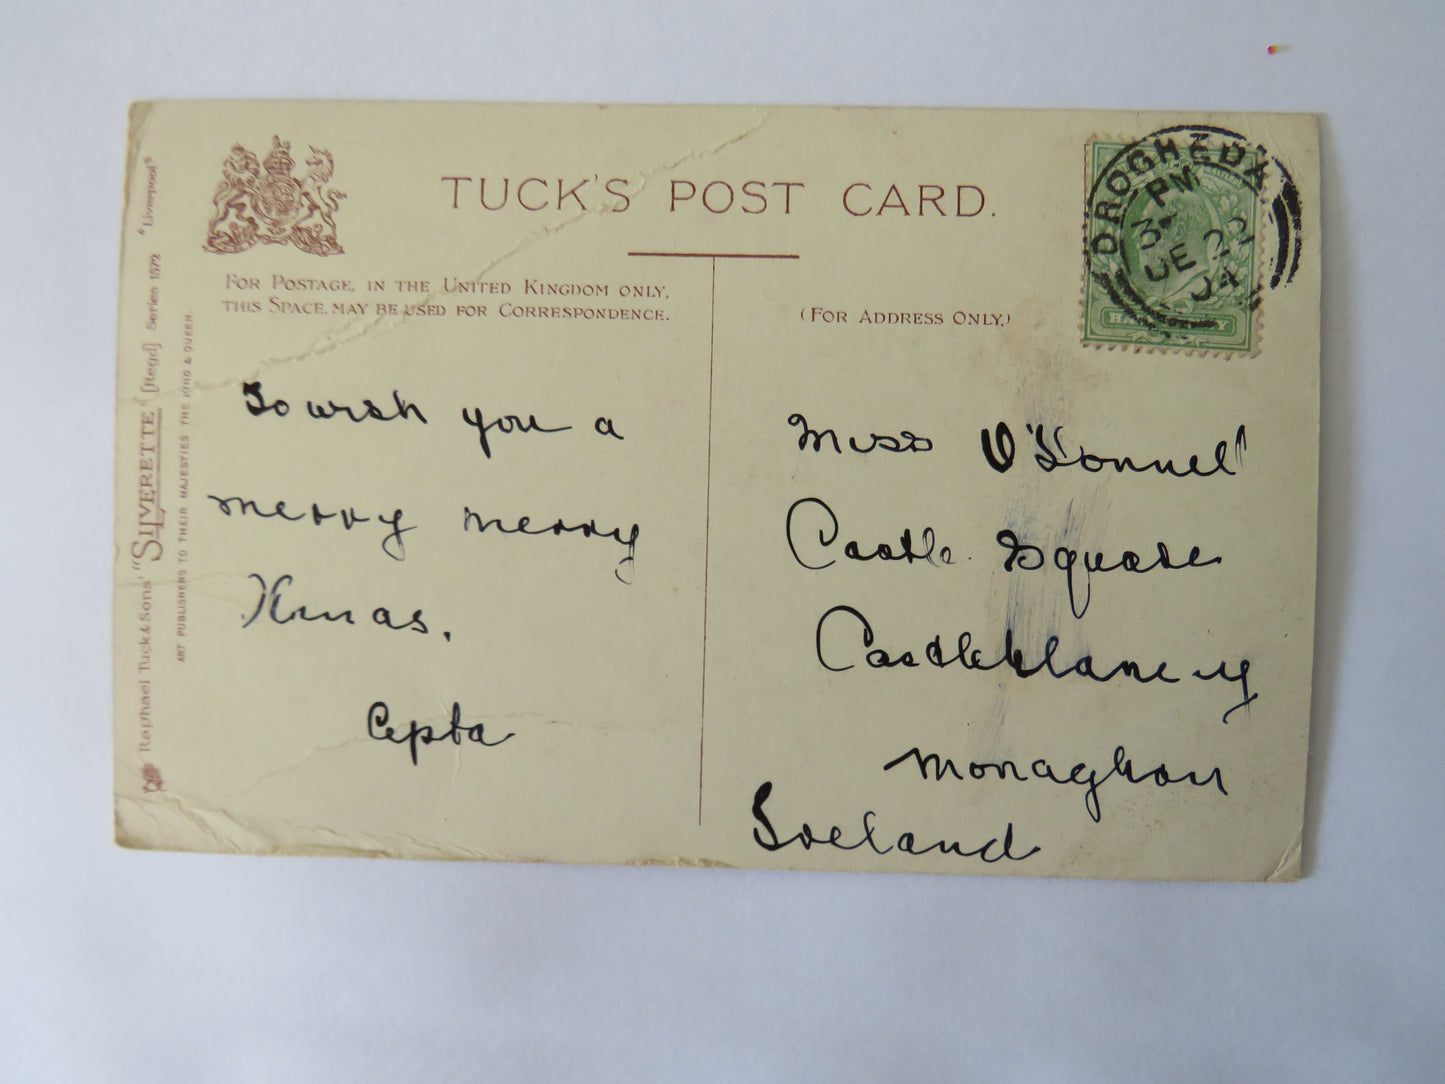 TUCK'S POST CARD.
FOR POSTAGE, IN THE UNITED KINGDOM ONLY,
THIS SPACE, MAY BE USED FOR CORRESPONDENCE.
(FOR ADDRESS ONLY.)
To wish you a
merry merry
Xmas.
Miss O'Donnell
Castle Square
Castleblaney
Monaghan
Ireland
DROGHEDA
PM
DE 22
04
Raphael Tuck & Sons' "SILVERETTE" [Regd] Series 1572 "Liverpool"
ART PUBLISHERS TO THEIR MAJESTIES THE KING & QUEEN.